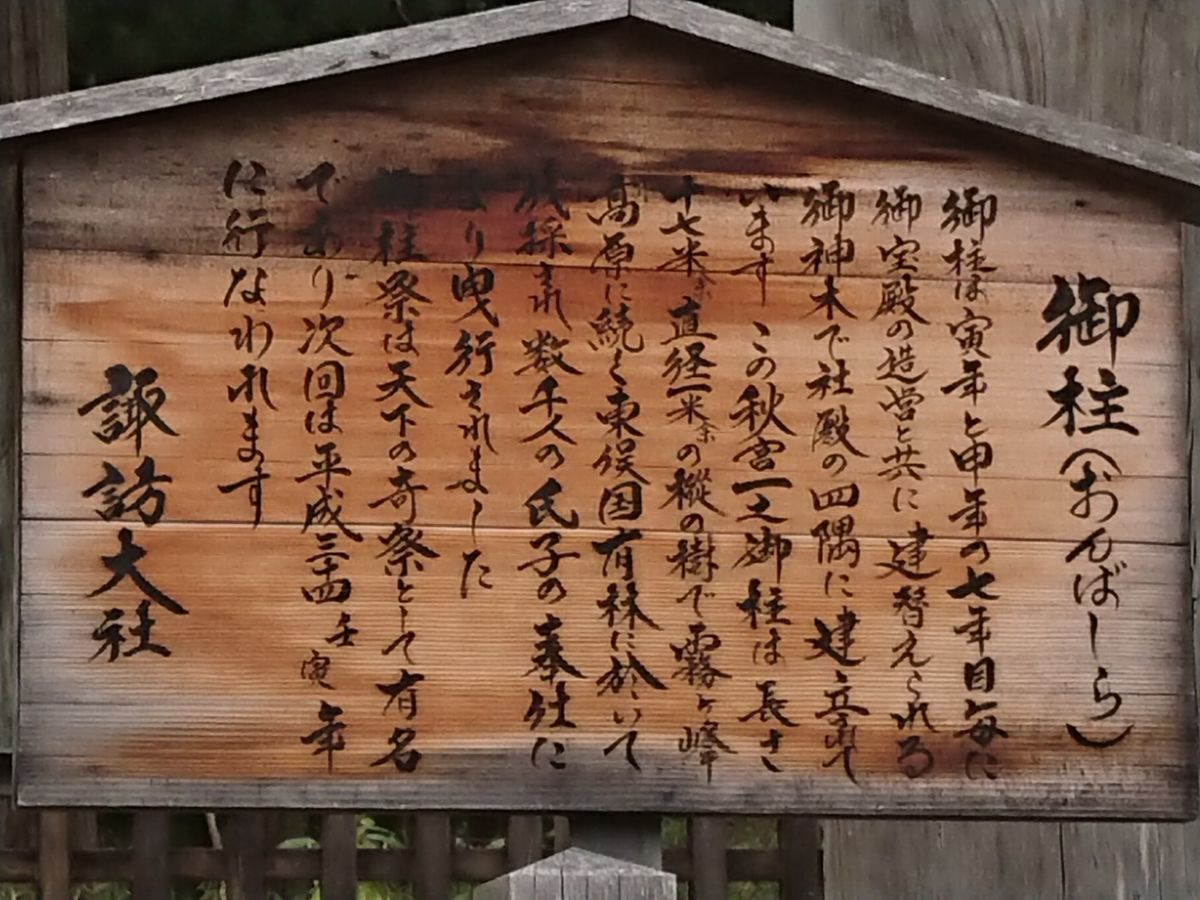 御柱（おんばしら）
御柱は寅年と申年の七年目毎に
御宝殿の造営と共に建替えられる
御神木で社殿の四隅に建立して
います この秋宮一之御柱は長さ
十七米余直径一米余の樅の樹で霧ヶ峰
高原に続く東俣国有林に於いて
伐採され数千人の氏子の奉仕に
より曳行されました
御柱祭は天下の奇祭として有名
であり次回は平成三十四壬寅年
に行なわれます
諏訪大社